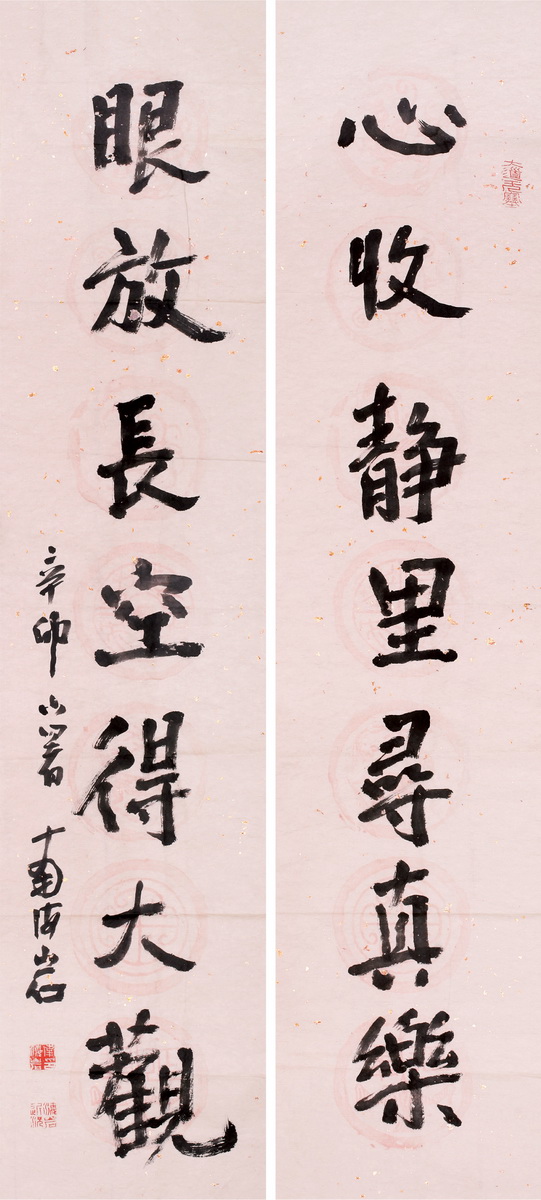 心收静里尋真樂
眼放長空得大觀
辛卯小暑 南海岩